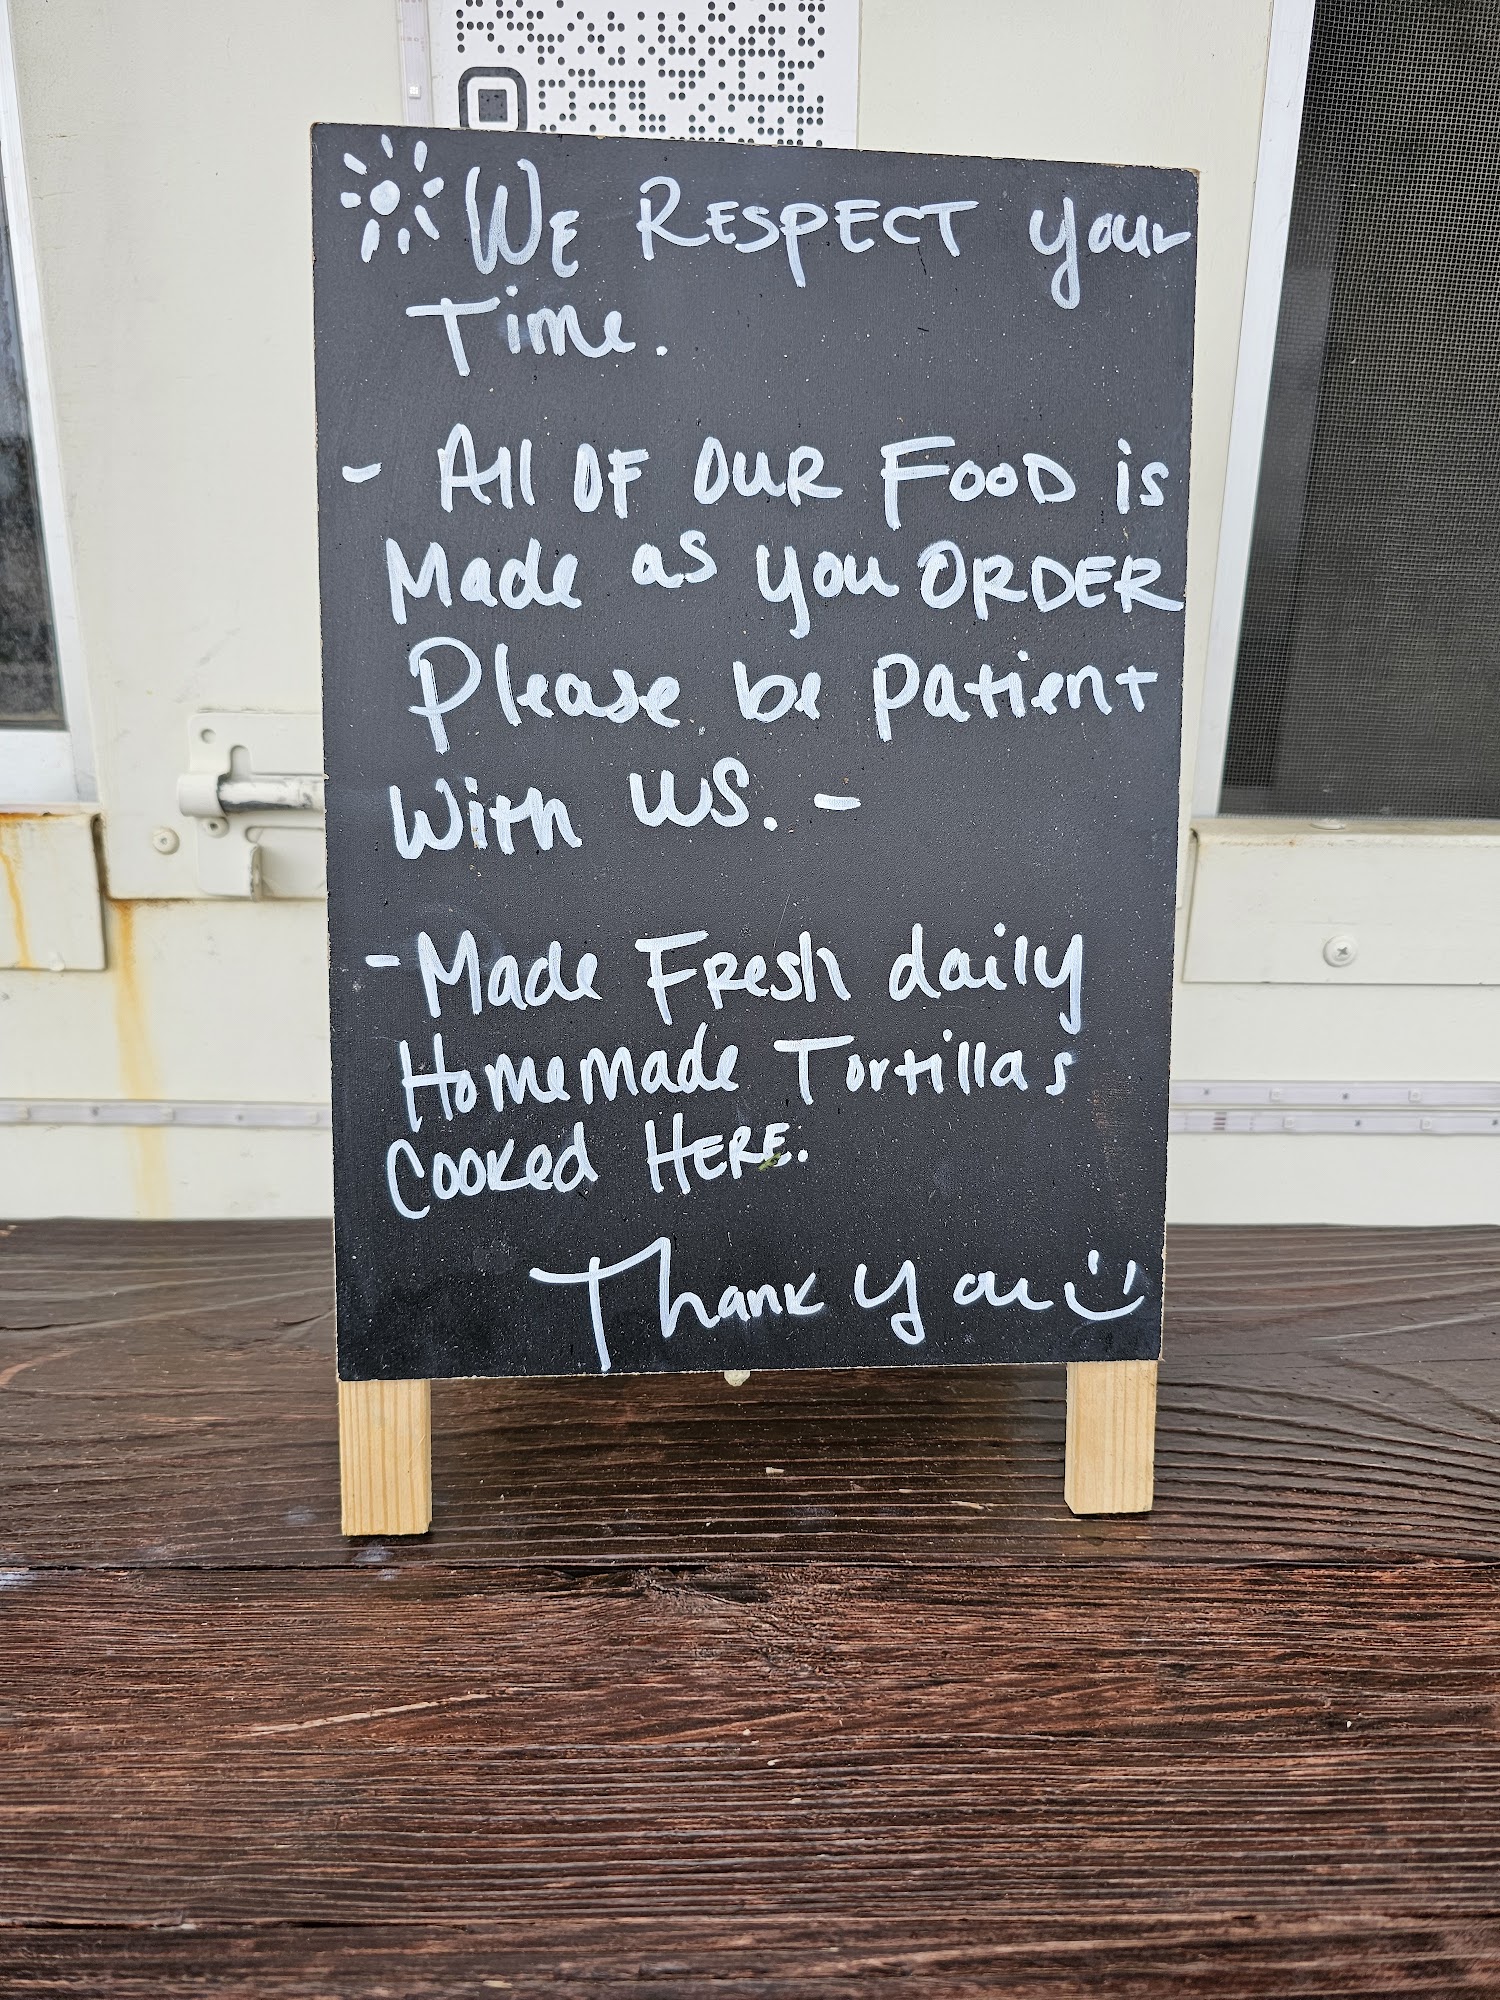 WE RESPECT your
Time.
- All OF OUR FOOD is
Made as you ORDER
Please be patient
With us. -
- Made Fresh daily
Homemade Tortillas
Cooked HERE.
Thank you